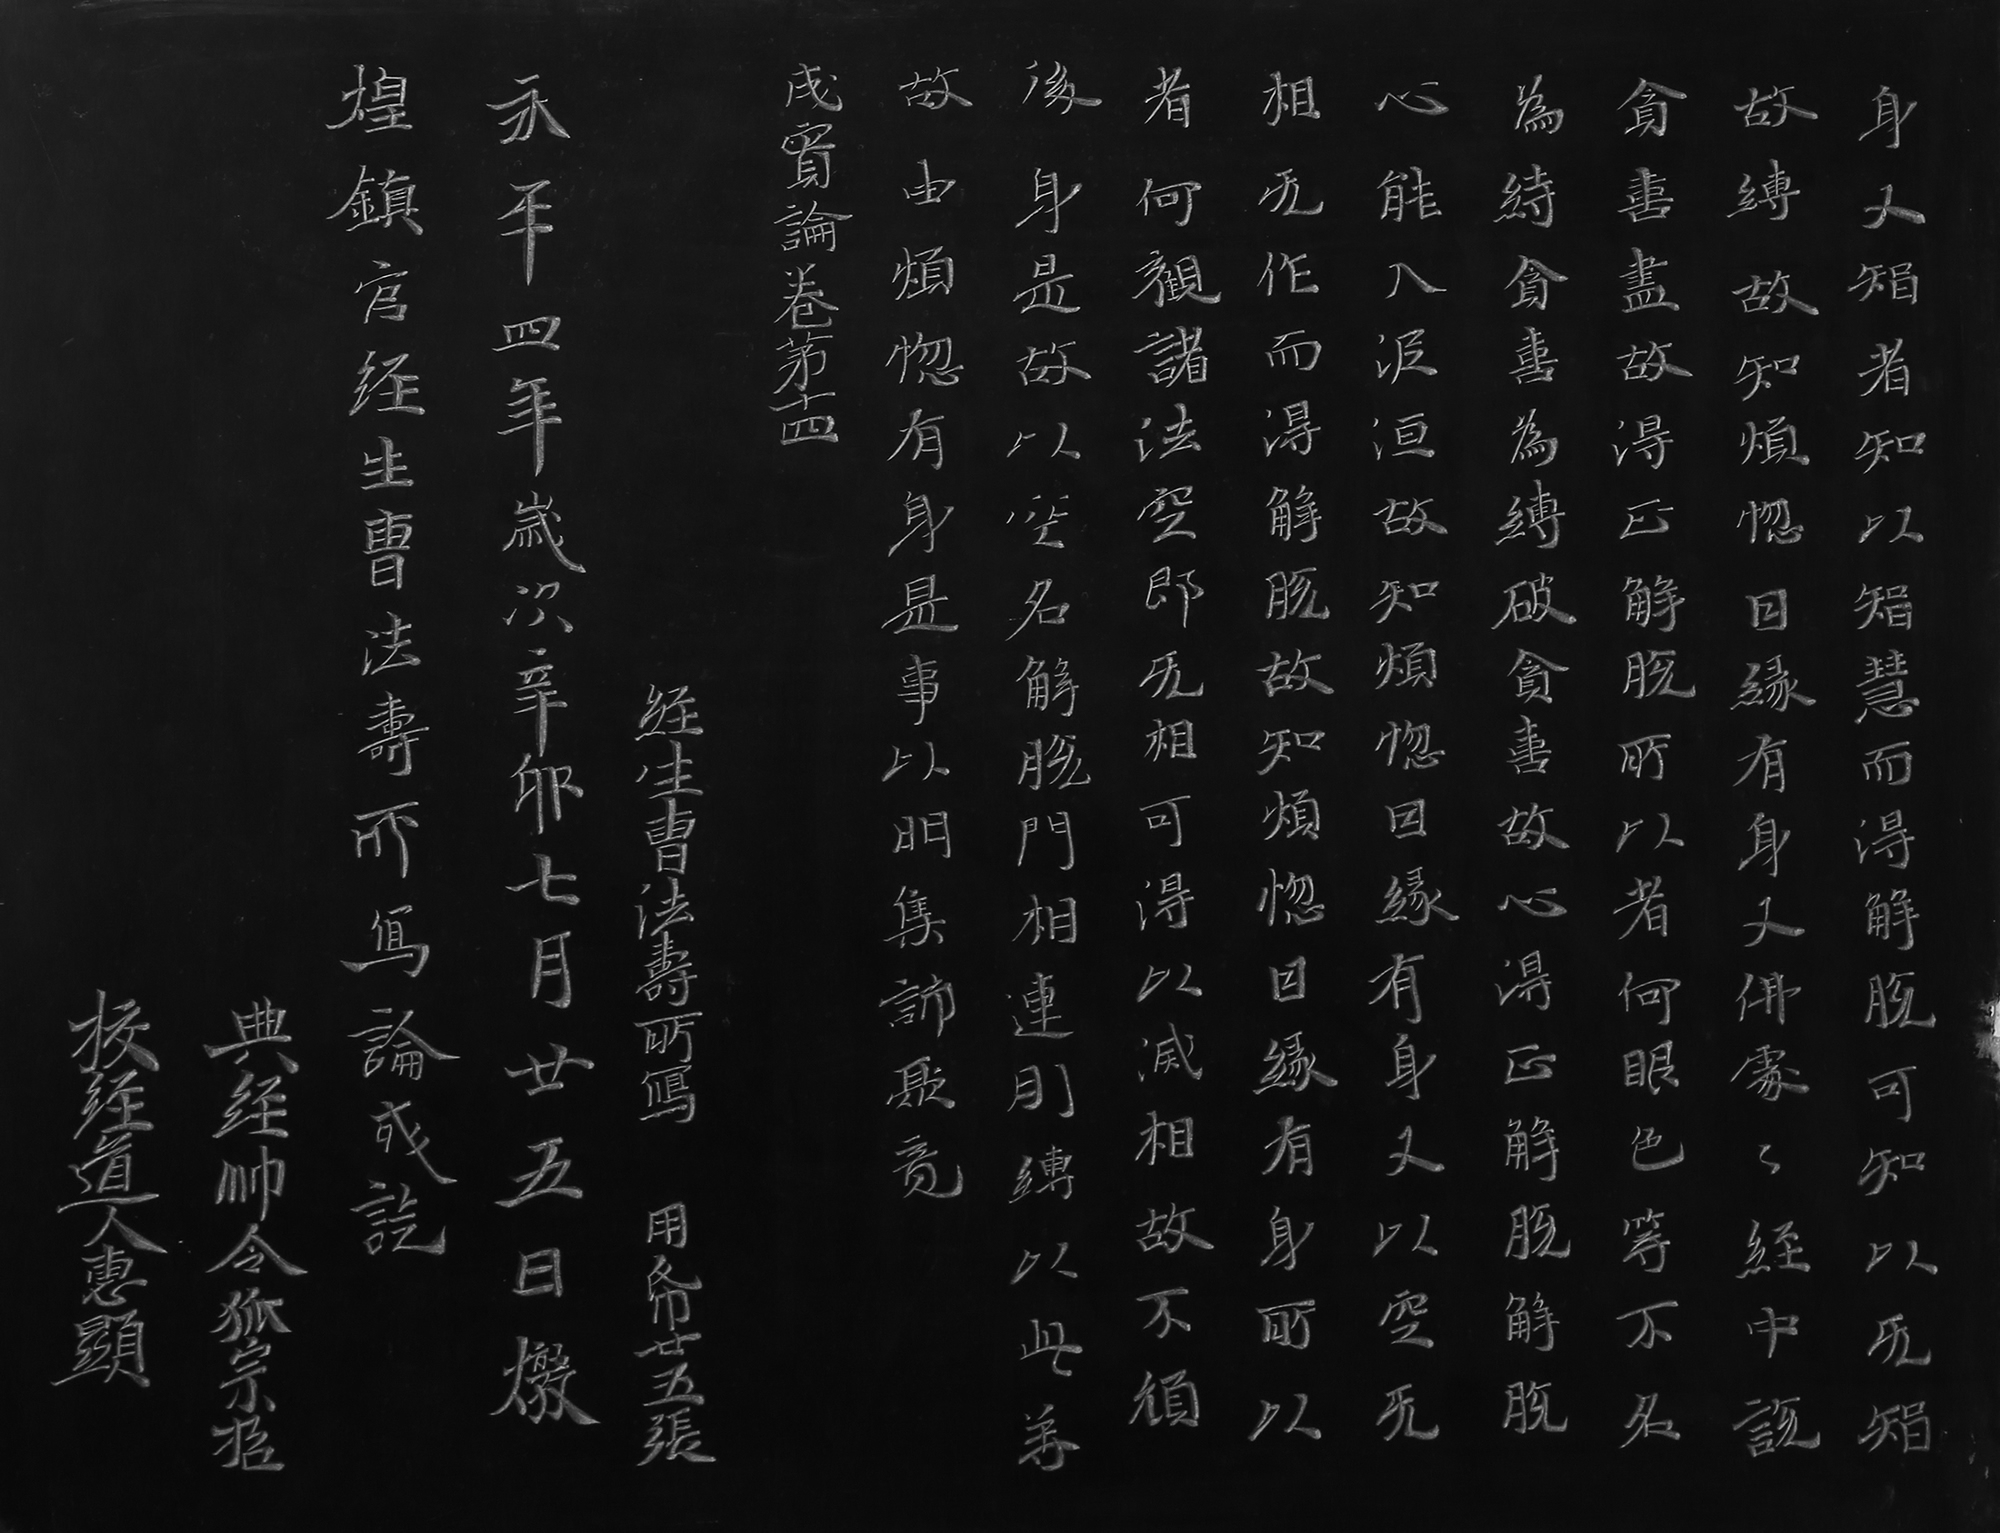 身又智者知以智慧而得解脱可知以无智
故縛故知煩惚因緣有身又佛處〻經中說
貪喜盡故得正解脱所以者何眼色等不名
為縛貪喜為縛破貪喜故心得正解脱解脱
心能入泥洹故知煩惚因緣有身又以空无
相无作而得解脱故知煩惚因緣有身所以
者何觀諸法空即无相可得以滅相故不願
後身是故以空名解脱門相連則縛以此等
故由煩惚有身是事以明集諦聚竟
成實論卷第十四
經生曹法壽所寫 用帋廿五張
永平四年歲次辛卯七月廿五日燉
煌鎮官经生曹法壽所寫論成訖
典经帅令狐崇哲
校经道人惠顯